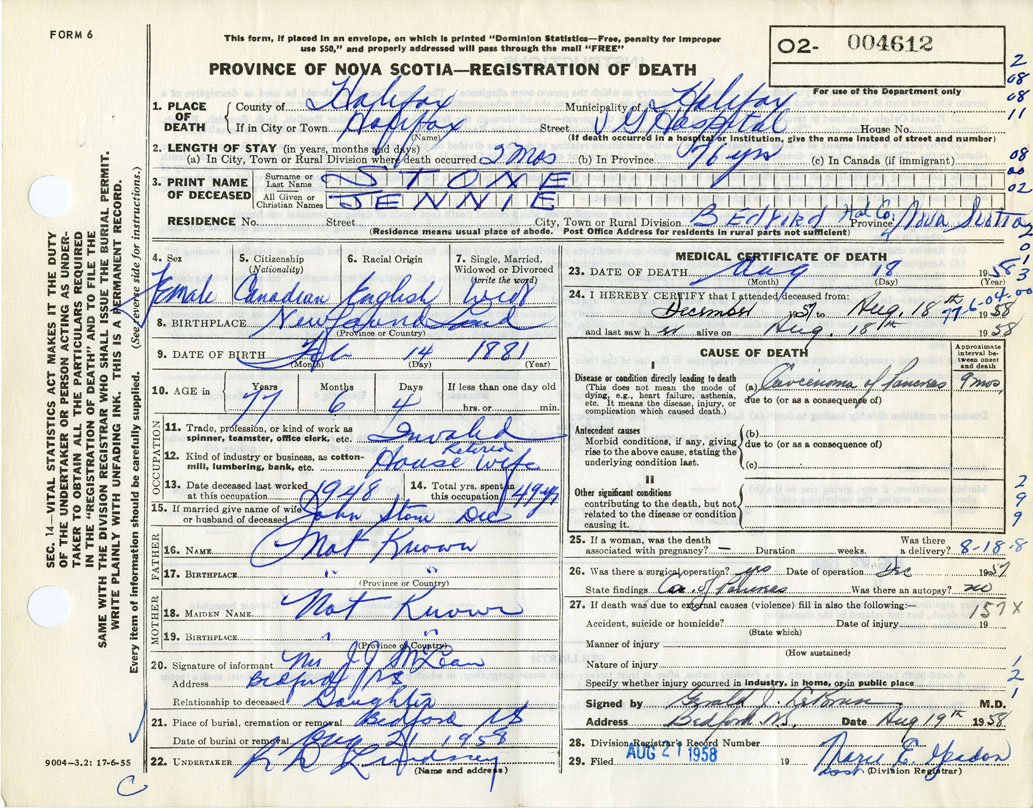 FORM 6
This form, if placed in an envelope, on which is printed "Dominion Statistics—Free, penalty for improper
use $50," and properly addressed will pass through the mail "FREE"
O2- 004612
For use of the Department only
PROVINCE OF NOVA SCOTIA—REGISTRATION OF DEATH
2
08
08
11
1. PLACE OF DEATH County of Halifax Municipality of Halifax
If in City or Town Halifax Street V G Hospital House No.
(Name) (If death occurred in a hospital or institution, give the name instead of street and number)
2. LENGTH OF STAY (in years, months and days)
(a) In City, Town or Rural Division where death occurred 2 mos (b) In Province 76 yrs (c) In Canada (if immigrant)
08
00
02
3. PRINT NAME OF DECEASED Surname or Last Name STONE
All Given or Christian Names JENNIE
RESIDENCE No. Street City, Town or Rural Division Bedford Hal Co. Province Nova Scotia
(Residence means usual place of abode. Post Office Address for residents in rural parts not sufficient)
2
0
1
3
SEC. 14—VITAL STATISTICS ACT MAKES IT THE DUTY
OF THE UNDERTAKER OR PERSON ACTING AS UNDER-
TAKER TO OBTAIN ALL THE PARTICULARS REQUIRED
IN THE "REGISTRATION OF DEATH" AND TO FILE THE
SAME WITH THE DIVISION REGISTRAR WHO SHALL ISSUE THE BURIAL PERMIT.
WRITE PLAINLY WITH UNFADING INK. THIS IS A PERMANENT RECORD.
Every item of information should be carefully supplied. (See reverse side for instructions.)
4. Sex 5. Citizenship (Nationality) 6. Racial Origin 7. Single, Married, Widowed or Divorced (write the word)
Female Canadian English Wid
8. BIRTHPLACE Newfoundland
(Province or Country)
9. DATE OF BIRTH Feb 14 1881
(Month) (Day) (Year)
10. AGE in Years Months Days If less than one day old
77 6 4 hrs. or min.
OCCUPATION
11. Trade, profession, or kind of work as
spinner, teamster, office clerk, etc. Invalid
Retired
12. Kind of industry or business, as cotton-
mill, lumbering, bank, etc. House wife
13. Date deceased last worked
at this occupation 1948
14. Total yrs. spent in
this occupation 49 yrs
15. If married give name of wife
or husband of deceased John Stone Dec
FATHER
16. NAME Not Known
17. BIRTHPLACE " "
(Province or Country)
MOTHER
18. MAIDEN NAME Not Known
19. BIRTHPLACE " "
(Province or Country)
20. Signature of informant Mrs J J McLean
Address Bedford NS
Relationship to deceased Daughter
21. Place of burial, cremation or removal Bedford NS
Date of burial or removal Aug 21 1958
22. UNDERTAKER
(Name and address)
9004-3.2: 17-6-55
C
MEDICAL CERTIFICATE OF DEATH
23. DATE OF DEATH Aug 18 1958
(Month) (Day) (Year)
24. I HEREBY CERTIFY that I attended deceased from:
77-6-04-00
December 1957 to Aug. 18th 1958
and last saw her alive on Aug. 18th 1958
CAUSE OF DEATH
Approximate interval between onset and death
I
Disease or condition directly leading to death
(This does not mean the mode of
dying, e.g., heart failure, asthenia,
etc. It means the disease, injury, or
complication which caused death.)
(a) Carcinoma of Pancreas 9 mos
due to (or as a consequence of)
Antecedent causes
Morbid conditions, if any, giving
rise to the above cause, stating the
underlying condition last.
(b)
due to (or as a consequence of)
(c)
II
Other significant conditions
contributing to the death, but not
related to the disease or condition
causing it.
2
9
9
25. If a woman, was the death
associated with pregnancy? — Duration weeks. Was there a delivery? 8-18-8
26. Was there a surgical operation? yes Date of operation Dec 1957
State findings Ca. of Pancreas Was there an autopsy? no
27. If death was due to external causes (violence) fill in also the following:—
157X
Accident, suicide or homicide? Date of injury 19
(State which)
Manner of injury
(How sustained)
Nature of injury
Specify whether injury occurred in industry, in home, or in public place
1
2
1
Signed by Gerald J. M.D.
Address Bedford, N.S., Date Aug 19th 1958.
28. Division Registrar's Record Number
29. Filed AUG 21 1958 19 Marie E.
(Division Registrar)